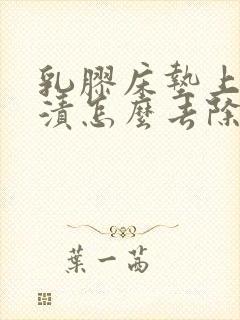 乳膠床墊上
漬怎麼去除
葉一茜